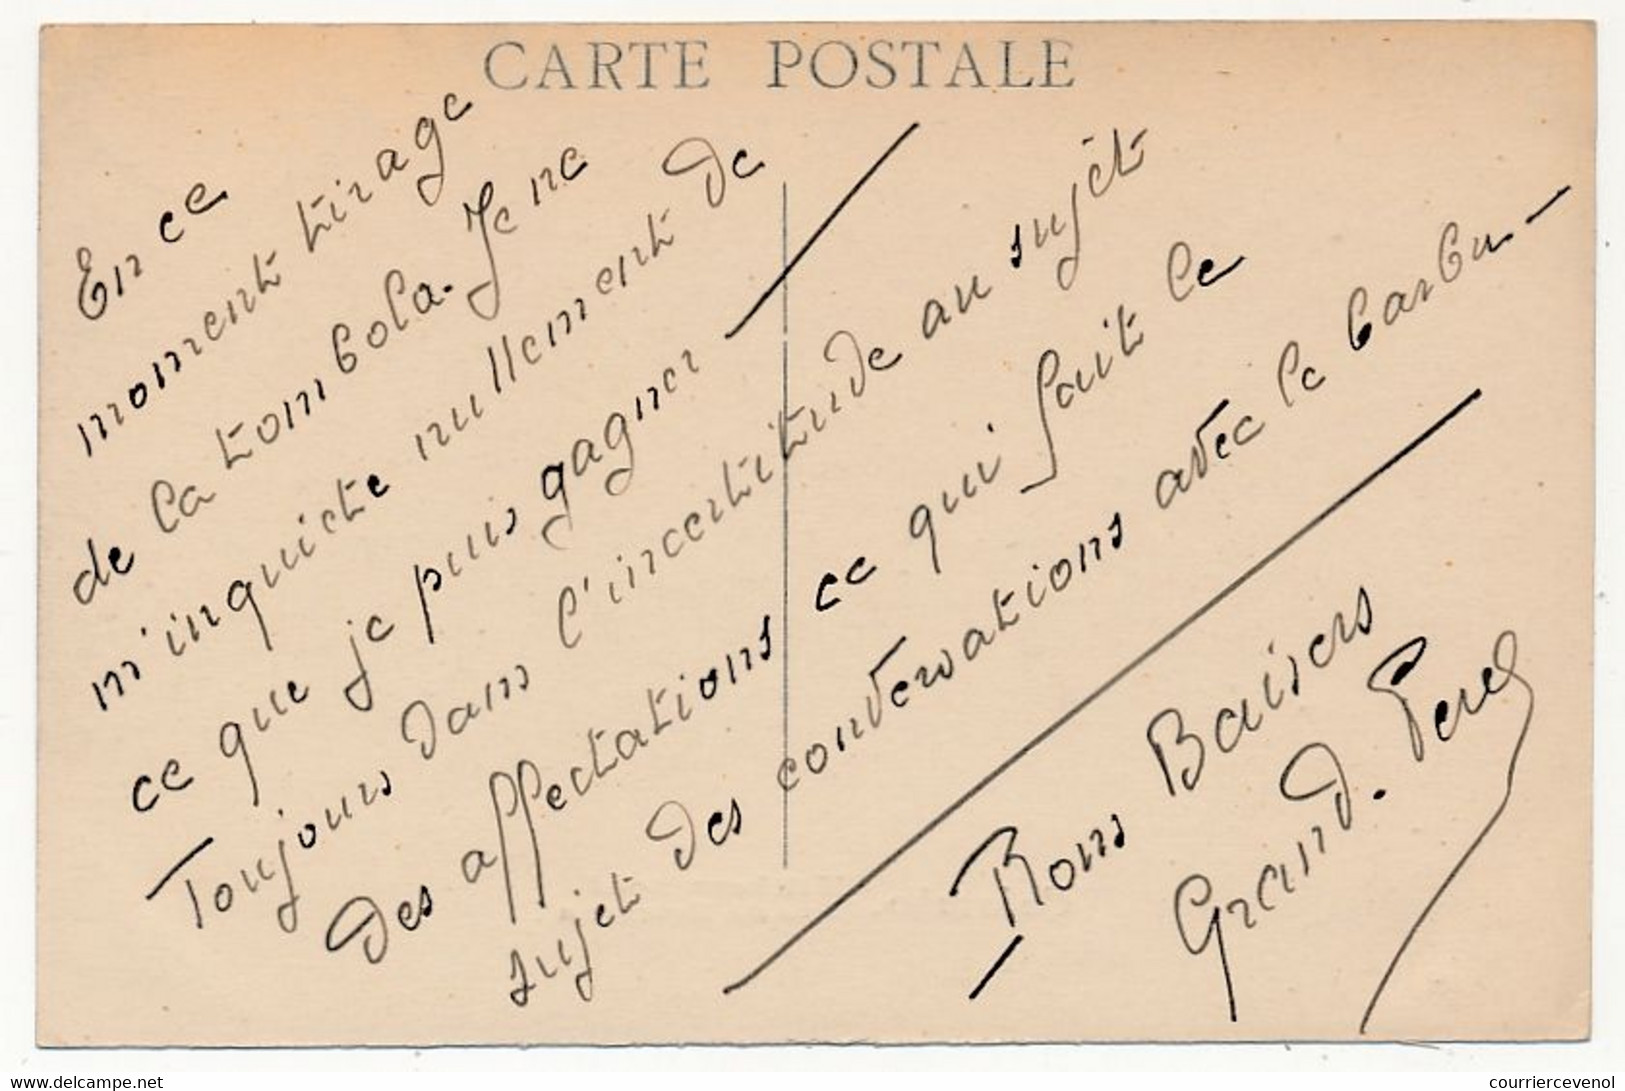 CARTE POSTALE
En ce
moment tirage
de la tombola. Je ne
m'inquiète nullement de
ce que je puis gagner —
Toujours dans l'incertitude au sujet
des affectations ce qui fait le
sujet des conversations avec le barbu —
— Bons Baisers
Grand. Père
www.delcampe.net
courriercevenol